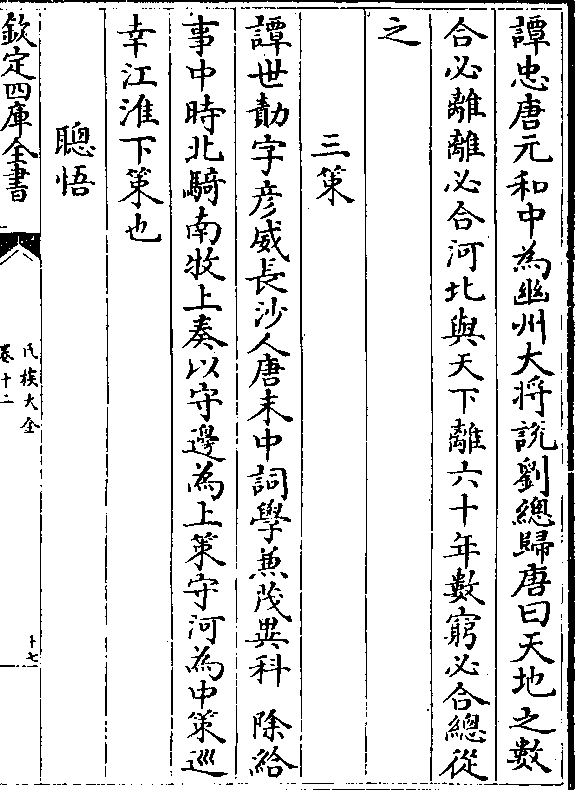 譚忠唐元和中為幽州大將說劉總歸唐曰天地之數
合必離離必合河北與天下離六十年數窮必合總從
之
三策
譚世勣字彦威長沙人唐末中詞學兼茂異科 除給
事中時北騎南牧上奏以守邊為上策守河為中策巡
幸江淮下策也
聰悟
欽定四庫全書
氏族大全
卷十二
十七